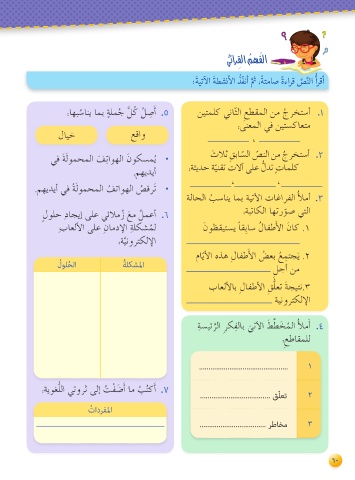 الفَهْمُ القِرائيُّ
أقرأُ النَّصَّ قراءةً صامتةً، ثمَّ أنفّذُ الأنشطةَ الآتيةَ:
١. أستخرجُ من المقطعِ الثّاني كلمتينِ
متعاكستينِ في المعنى:
__________ ، __________
٢. أستخرجُ من النصِّ السّابقِ ثلاثَ
كلماتٍ تدلُّ على آلاتٍ تقنيّةٍ حديثةٍ.
________،________،________
٣. أملأُ الفراغاتِ الآتيةَ بما يناسبُ الحالةَ
التي صوّرتها الكاتبةُ:
١. كانَ الأطفالُ سابقاً يستيقظونَ
____________________
٢. يَجتمعُ بعضُ الأطفالِ هذه الأيّامِ
من أجلِ ____________________
٣.نتيجةَ تعلُّقِ الأطفالِ بالألعابِ
الإلكترونية ____________________
٤. أملأُ المُخطَّطَ الآتيَ بالفِكَرِ الرَّئيسةِ
للمقاطعِ.
١ ........................................
٢ تعلّق ................................
٣ مخاطر ..............................
٥. أصِلُ كُلَّ جُملةٍ بما يناسبُها:
واقع خيال
• يُمسكونَ الهواتِفَ المحمولةَ في
أيديهم.
• ترقصُ الهواتفُ المحمولةُ في أيديهم.
٦. أعملُ معَ زُملائي على إيجادِ حلولٍ
لمُشكلةِ الإدمانِ على الألعابِ
الإلكترونيّة.
المُشكلةُ الحُلولُ
٧. أكتُبُ ما أضَفْتُ إلى ثروتي اللُّغوية.
المُفرداتُ
٦٠